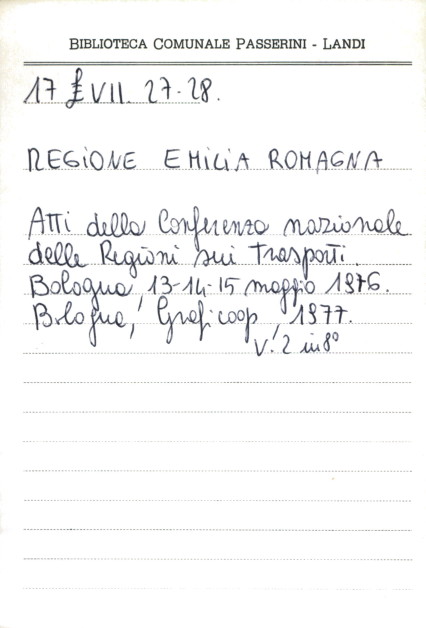 BIBLIOTECA COMUNALE PASSERINI - LANDI
17 £ VII. 27-28.
REGIONE EMILIA ROMAGNA
Atti della Conferenza nazionale
delle Regioni sui trasporti.
Bologna, 13-14-15 maggio 1976.
Bologna, Graficoop, 1977.
V. 2 in 8°